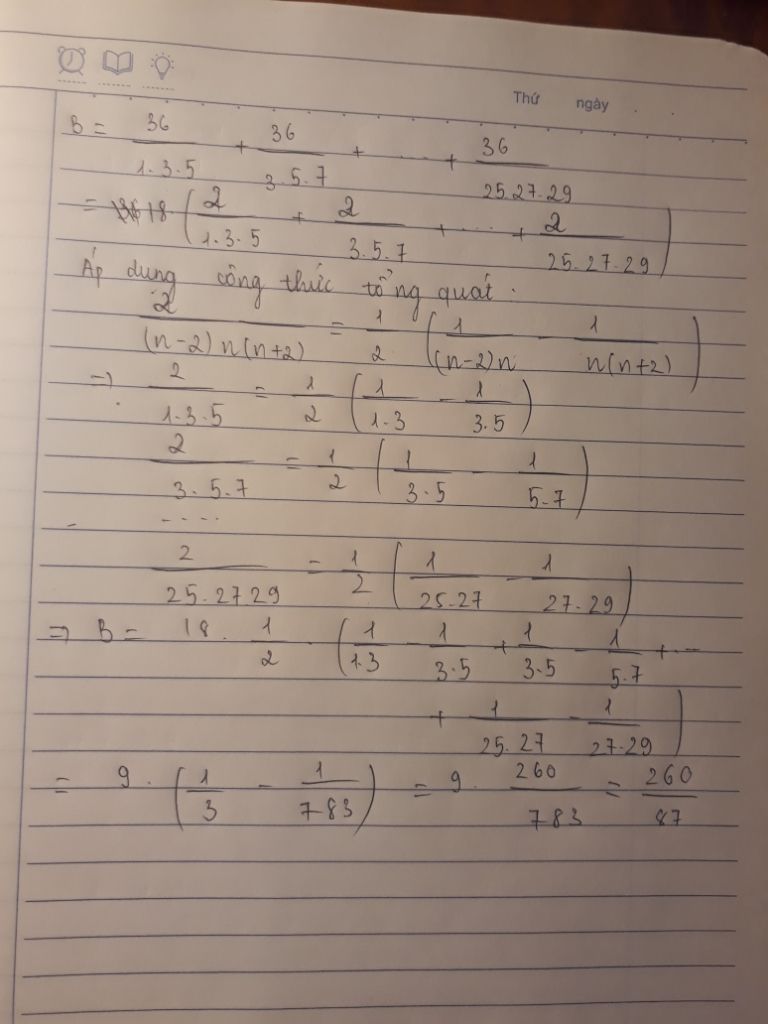 Thứ ngày
B = 36/1.3.5 + 36/3.5.7 + .... + 36/25.27.29
= 18. (2/1.3.5 + 2/3.5.7 + .... + 2/25.27.29)
Áp dung công thức tổng quát :
2/(n-2)n(n+2) = 1/2 (1/(n-2)n - 1/n(n+2))
=> 2/1.3.5 = 1/2 (1/1.3 - 1/3.5)
2/3.5.7 = 1/2 (1/3.5 - 1/5.7)
....
2/25.27 29 = 1/2 (1/25.27 - 1/27.29)
=> B = 18. 1/2 . (1/1.3 - 1/3.5 + 1/3.5 - 1/5.7 + ...
+ 1/25.27 - 1/27.29)
= 9. (1/3 - 1/783) = 9. 260/783 = 260/87